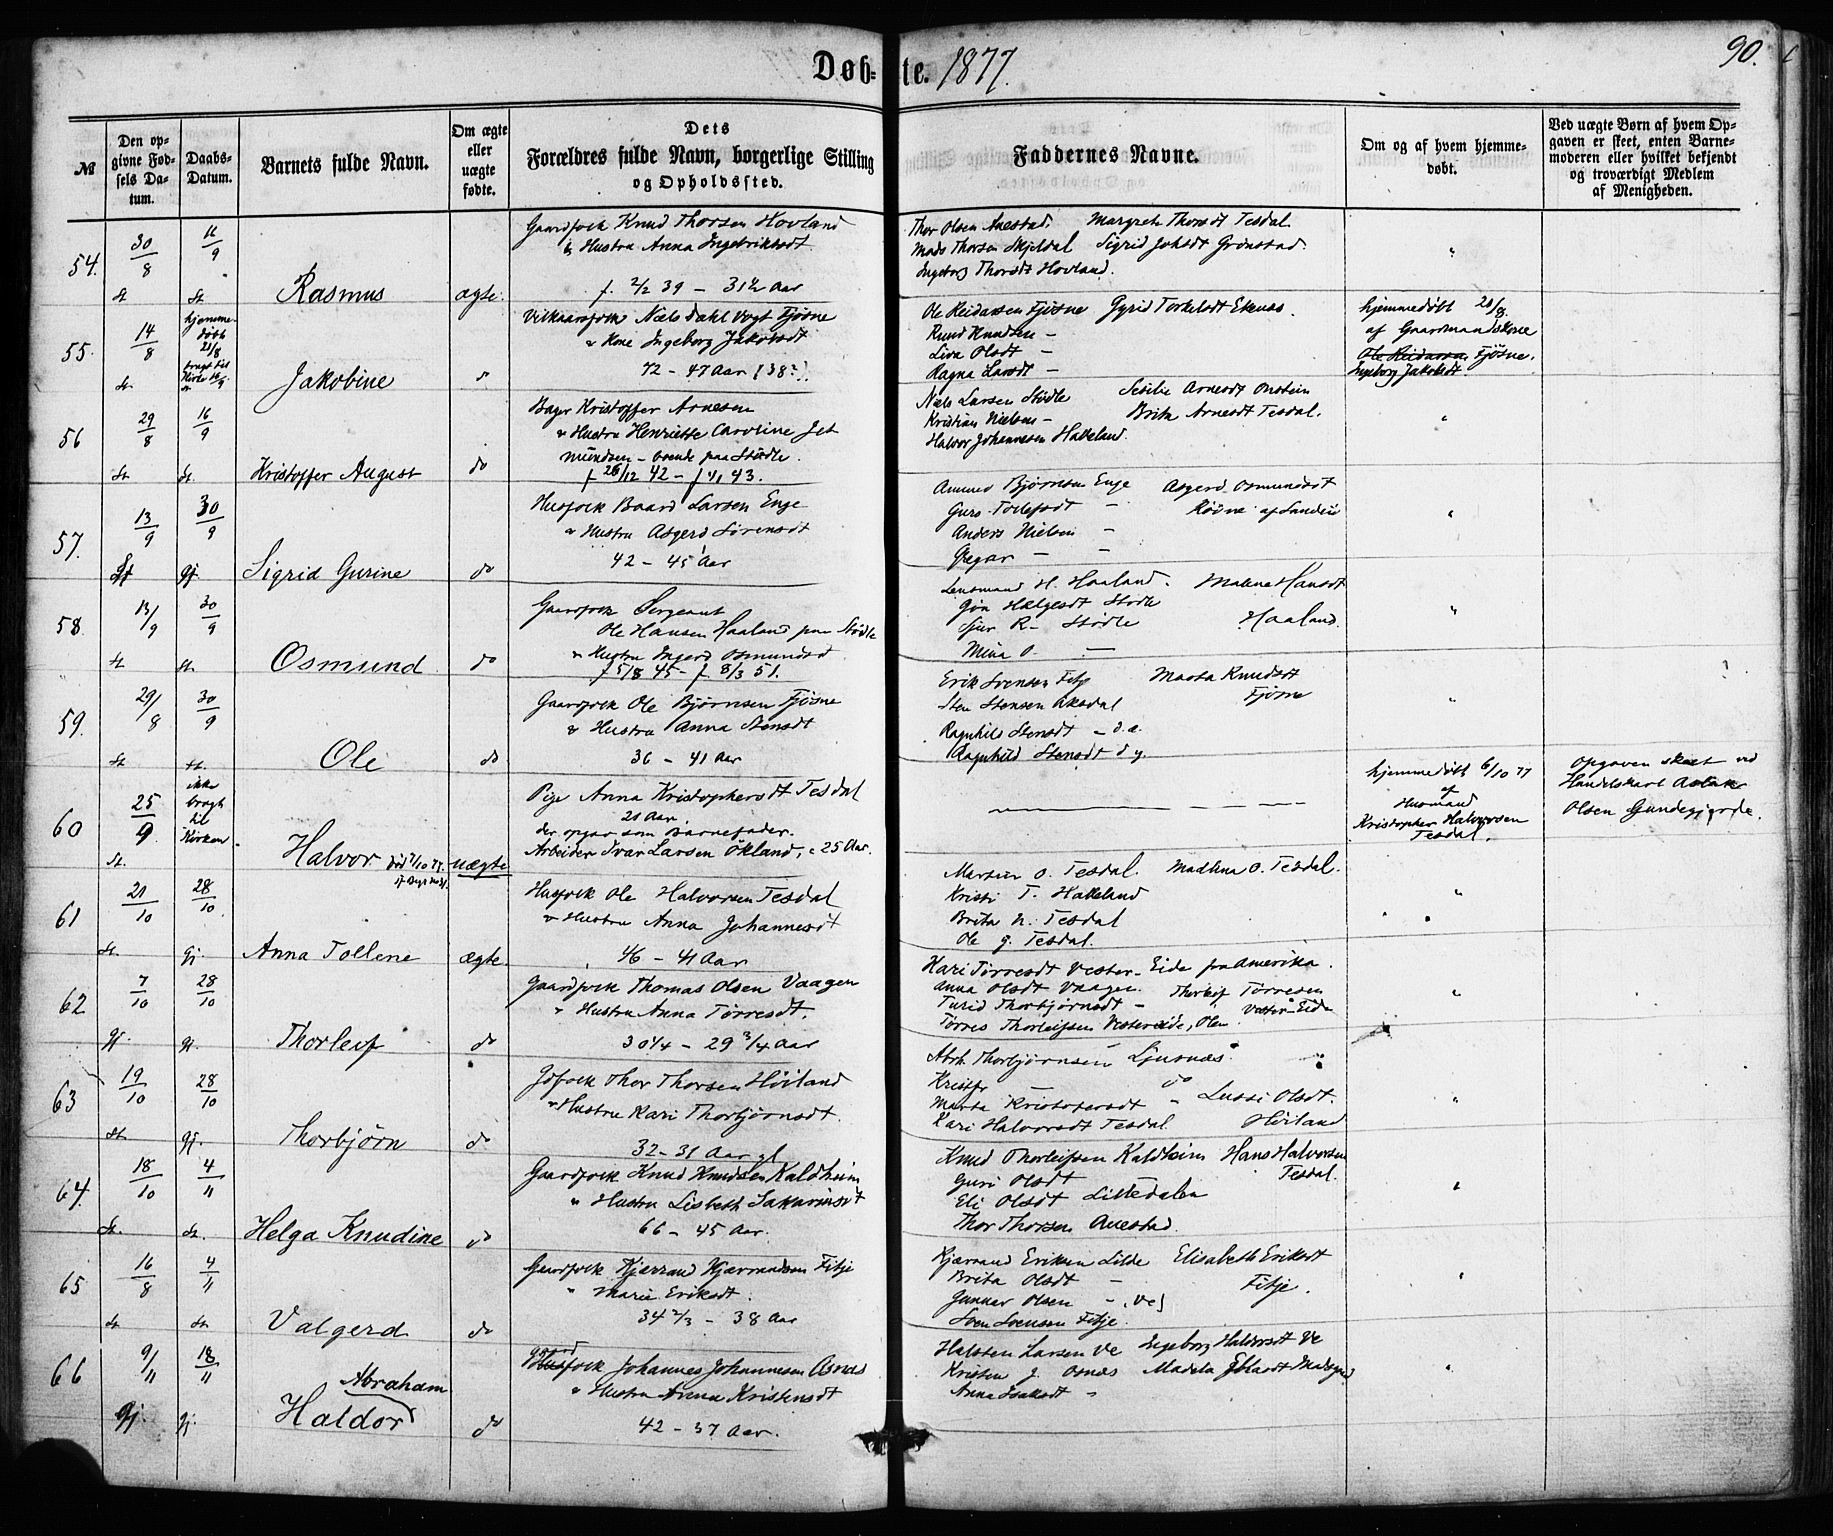 Døbte. 1877.
90.
№
Den opgivne Fødsels Datum.
Daabs-Datum.
Barnets fulde Navn.
Om ægte eller uægte fødte.
Dets Forældres fulde Navn, borgerlige Stilling og Opholdssted.
Faddernes Navne.
Om og af hvem hjemmedøbt.
Ved uægte Børn af hvem Opgaven er skeet, enten Barnemoderen eller hvilket bekjendt og troværdigt Medlem af Menigheden.
54.
30/8
11/9
Rasmus
ægte.
Gaardfolk Knud Thorsen Hovland
& Hustru Anna Ingebriktsdt
f. 2/2 39 - 31 1/2 Aar
Thor Olsen Auestad. Margrete Thorsdt Tesdal
Mads Thorsen Skjeldal Sigrid Johsdt Grønstad
Ingeborg Thorsdt Hovland.
"
55.
14/8
hjemme
døbt
21/8
bragt til
Kirke 16/9
Jakobine
do
Vilkaarsfolk Næls Dahl Vogt Fjøsne
& Kone Ingeborg Jakobsdt
72 - 47 Aar (38?).
Ole Reidarsen Fjøsne Gyrid Torkelsdt Ekenæs.
Knud Knudsen -
Liva Olsdt -
Ragna Larsdt -
hjemmedøbt 21/8
af Gaardmandskone
Ole Reidarsen Fjøsne.
Ingeborg Jakobsdt
56
29/8
16/9
Kristoffer August
do
Bager Kristoffer Arnesen
& Hustru Henriette Caroline Jet
mundsen - boende paa Stødle.
f 26/12 42 - f 4/1 43.
Næls Larsen Stødle Sesilie Arnesdt Østein
Kristian Nielsen - Brita Arnesdt Tesdal.
Halvor Johannesen Halleland.
"
57.
13/9
30/9
Sigrid Gurine
do
Husfolk Baard Larsen Enge
& Hustru Asgerd Sørensdt
42 - 45 Aar
Ammund Bjørnsen Enge Asgerd Osmundsdt
Guro Tollefsdt - Røvne af Sandeid
Anders Nielsen -
Gregar - -
"
58.
13/9
30/9
Osmund
do
Gaardfolk Sergeant
Ole Hansen Haaland paa Stødle
& Hustru Ingerd Osmundsd
f 5/8 45 - f. 8/3 51.
Lensmand H. Haaland. Malene Hansdt
Gjøn Hælgesdt Stødle Haaland.
Sjur R - Stødle
Mina O. -
"
59.
29/8
30/9
Ole
do
Gaardfolk Ole Bjørnsen Fjøsne
& Hustru Anna Stensdt
36 - 41 Aar
Erik Svensen Fitje Marta Knudsdt
Sten Stensen Aksdal Fjøsne
Ragnhild Stensdt - d. æ.
Ragnhild Stensdt d y.
"
60
25/9.
ikke
bragt
til
Kirken
Halvor død 7/10 77.
uægte
Pige Anna Kristophersdt Tesdal
21 Aar.
der opgav som Barnefader.
Arbeider Ivar Larsen Økland, 25 Aar.
hjemmedøbt 6/10 77
af
Husmand
Kristopher Halvorsen
Tesdal.
Opgaven skeet ved
Handelskarl Aslak
Olsen Gundegjerde.
61
21/10
28/10
Anna Tolline
ægte.
Husfolk Ole Halvorsen Tesdal
& Hustru Anna Johannesdt
46 - 41 Aar
Marsein O. Tesdal. Madlena O. Tesdal.
Kristi T. Halleland
Brita N. Tesdal
Ole G. Tesdal.
"
62
7/10
28/10
Thorleif
do
Gaardfolk Thomas Olsen Vaagen
& Hustru Anna Tørresdt.
30 1/4 - 29 3/4 Aar
Hari Tørresdt Vester-Eide fra Amerika.
Anna Olsdt Vaagen. Thorleif Tørresen
Turid Thorbjørnsdt - Vester-Eide
Tørres Thorleifsen Vestereide, Olen
"
63
19/10
28/10
Thorbjørn
do
Gdfolk Thor Thorsen Høiland
& Hustru Kari Thorbjørnsdt.
32 - 31 Aar gl
Abrh. Thorbjørnsen Ljusnæs
Kristfr — do
Marta Kristofersdt " Lussi Olsdt.
Kari Halvorsdt Tesdal Høiland
"
64.
18/10
4/11
Helga Knudine
do
Gaardfolk Knud Knudsen Kaldheim
" Hustru Lisbeth Sakariasdt
66 - 45 Aar.
Knud Thorleifsen Kaldheim Hans Halvorsen
Guri Olsdt Tesdal.
Eli Olsdt Littedalen
Thor Thorsen Auestad
"
65
16/8
4/11
Valgerd
do
Gaardfolk Kjærrand Kjærrandsen Fitje
" Marie Eriksdt.
34 2/3 - 38 Aar
Kjærrand Eriksen Lilde Elisabeth Eriksdt
Brita Olsdt - Fitje.
Gunnar Olsen - (Ve)
Sven Svensen Fitje.
"
66
9/11
18/11
Abraham
Haldor
do
Gaard
Husfolk Johannes Johannesen Asnæs
& Hustru Anna Kristensdt
42 - 37 Aar.
Halsten Larsen Ve Ingeborg Halvorsdt Ve
Kristen J. Osnæs Madela
Anna Isaksdt "
"